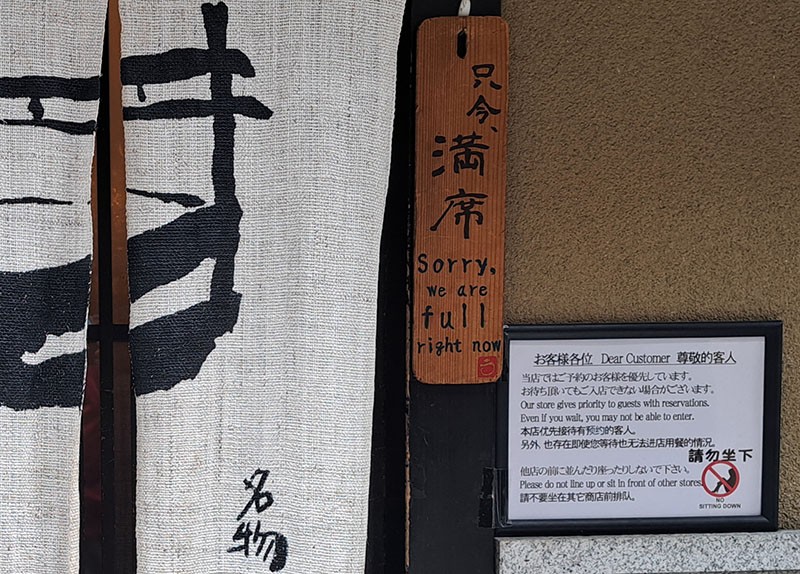 名物
只今、
満席
Sorry,
we are
full
right now
お客様各位 Dear Customer 尊敬的客人
当店ではご予約のお客様を優先しています。
お待ち頂いてもご入店できない場合がございます。
Our store gives priority to guests with reservations.
Even if you wait, you may not be able to enter.
本店优先接待有预约的客人。
另外, 也存在即使您等待也无法进店用餐的情况。
請勿坐下
他店の前に並んだり座ったりしないで下さい。
Please do not line up or sit in front of other stores.
請不要坐在其它商店前排队。
NO
SITTING DOWN